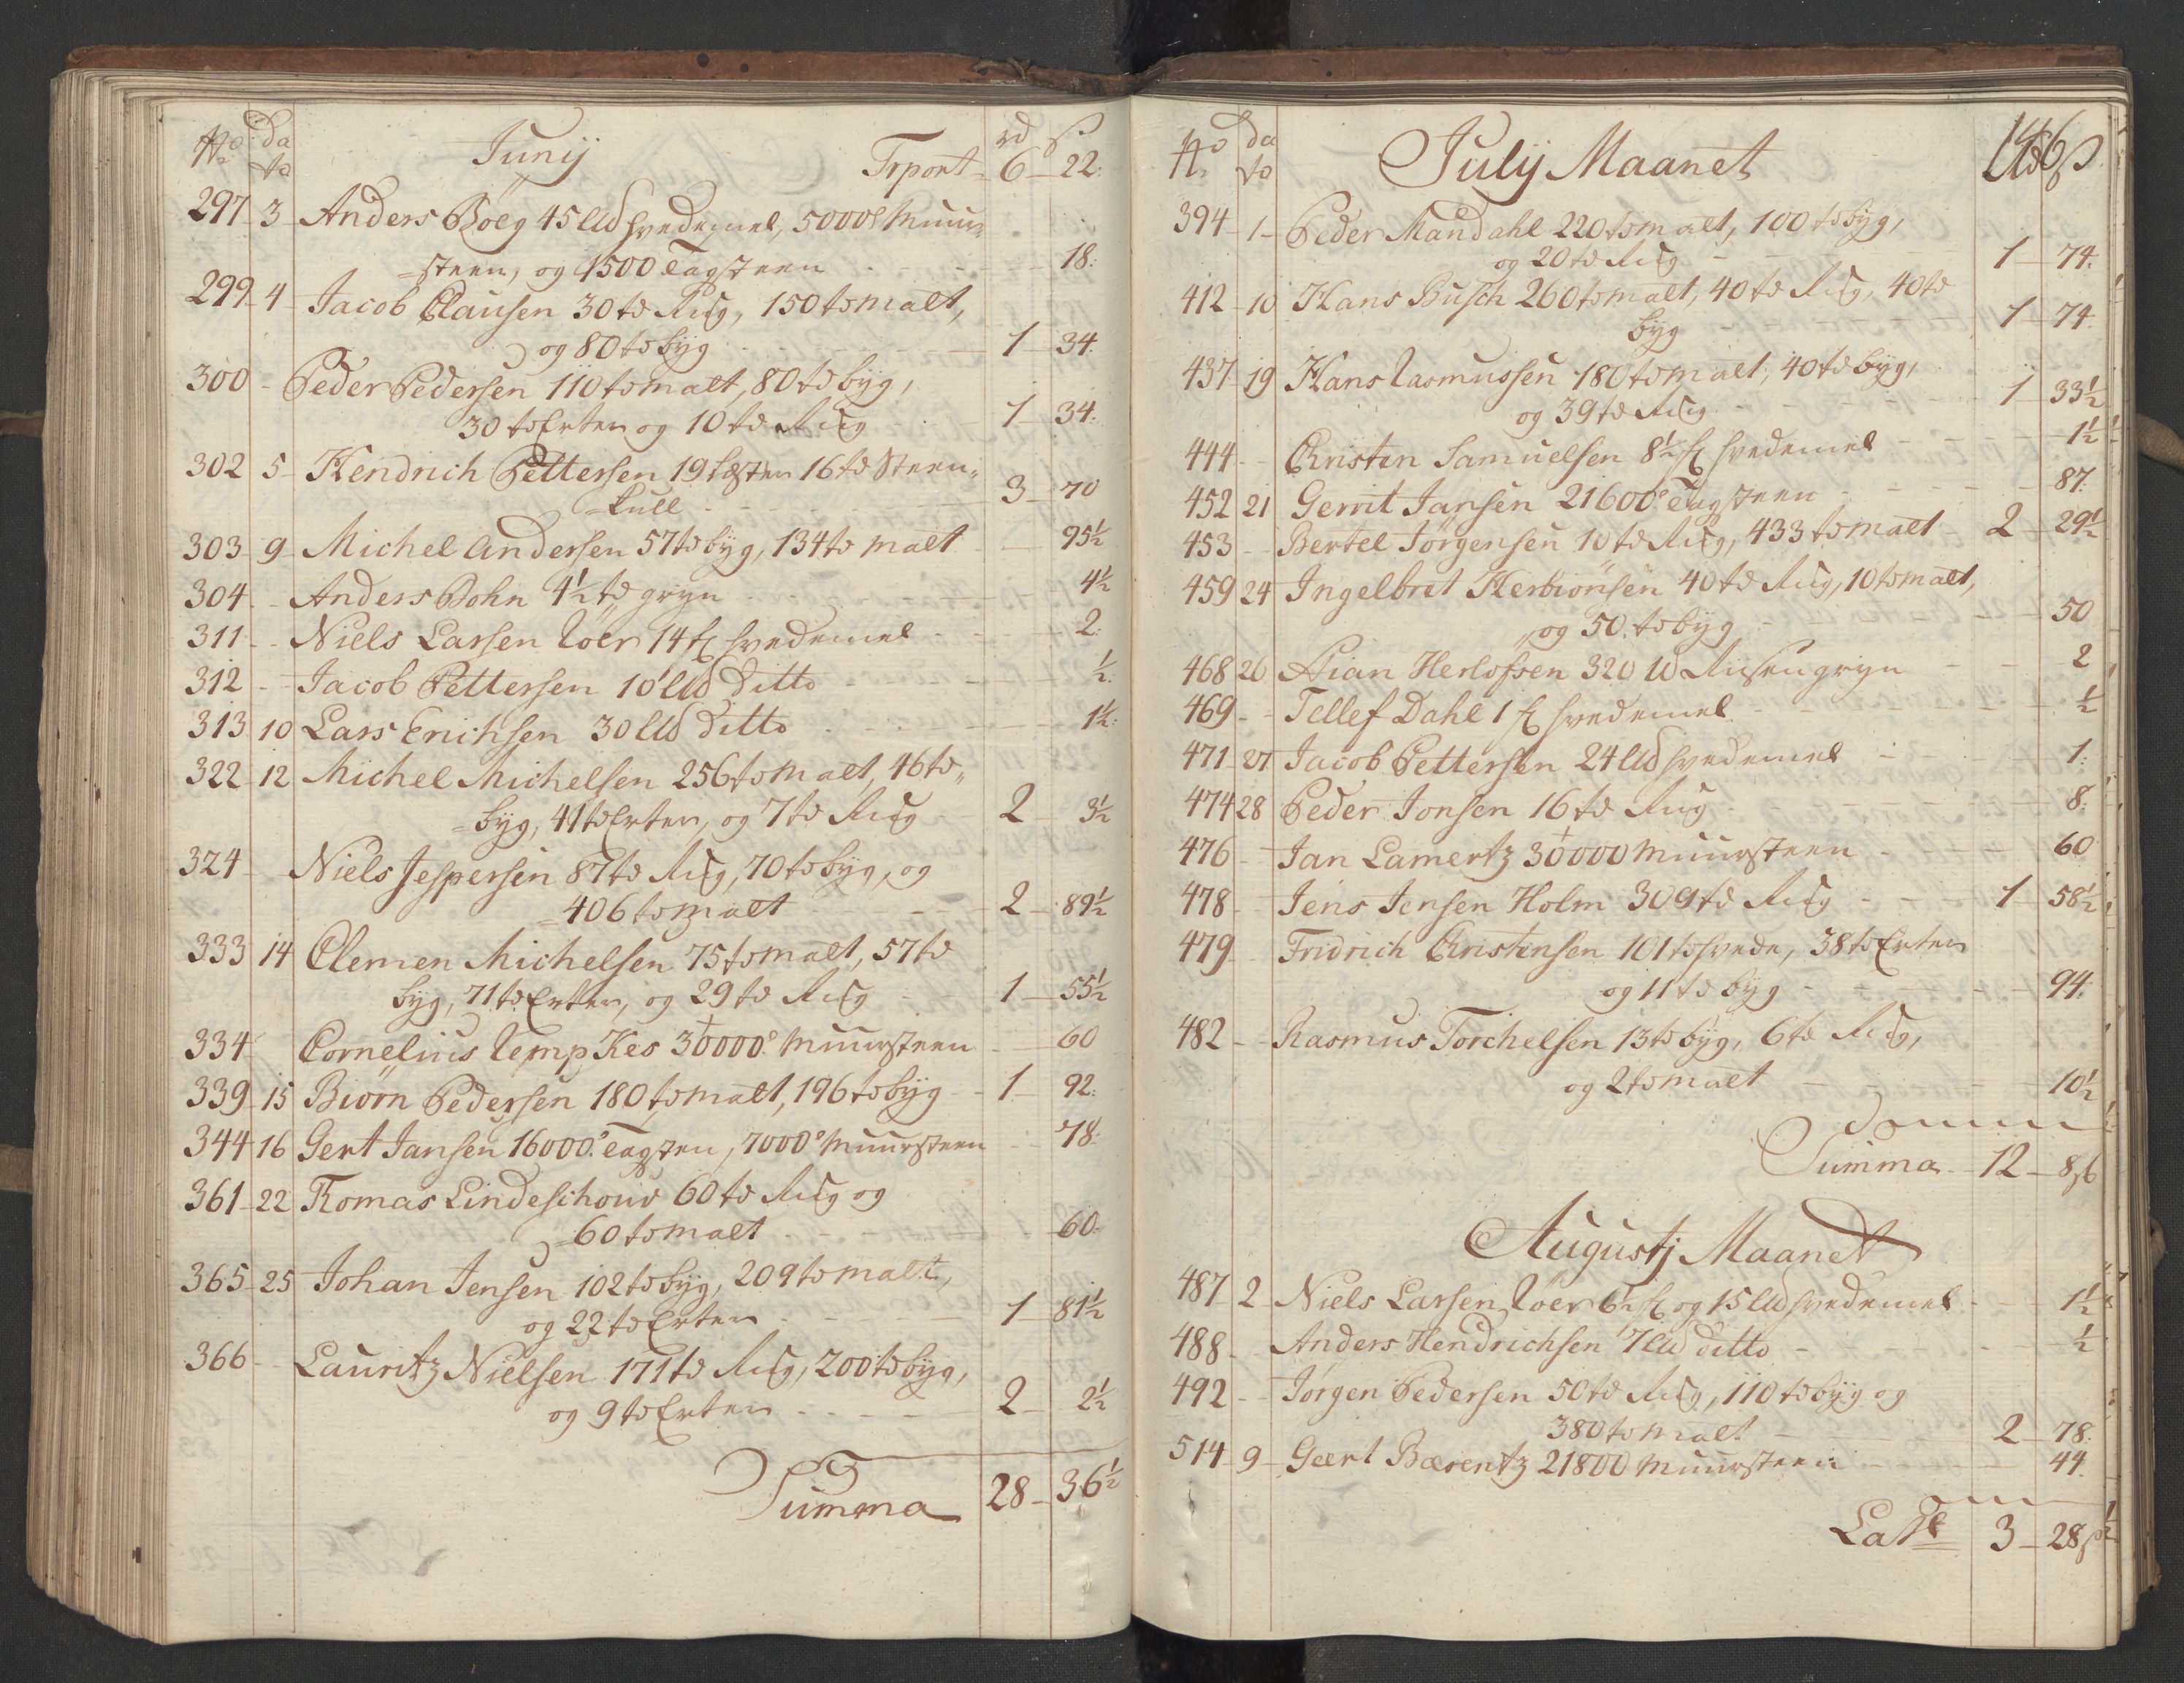 No da to Junij rd s
Trport 6 22
297 3 Anders Bøeg 45 lld hvedemel, 5000 Muur-
steen, og 1500 Tagsteen 18
299 4 Jacob Clausen 30 td Rug, 150 td malt,
og 80 td byg 1 34
300 Peder Pedersen 110 td malt, 80 td byg,
30 td Erter og 10 td Rug 1 34
302 5 Hendrich Pettersen 19 Læster 16 td Steen-
kull 3 70
303 9 Michel Andersen 57 td byg, 134 td malt 95½
304 Anders Bohn 4½ td gryn 4½
311 Niels Larsen Roer 14 hvedemel 2
312 Jacob Pettersen 10 lld ditto ½
313 10 Lars Erichsen 30 lld ditto 1½
322 12 Michel Michelsen 256 td malt, 46 td
byg, 41 td Erter, og 7 td Rug 2 3½
324 Niels Jespersen 87 td Rug, 70 td byg, og
406 td malt 2 89½
333 14 Clemen Michelsen 75 td malt, 57 td
byg, 71 td Erter, og 29 td Rug 1 55½
334 Cornelius Kes 30000 Muursteen 60
339 15 Biørn Pedersen 180 td malt, 196 td byg 1 92
344 16 Gert Jansen 16000 Tagsten, 7000 Muursteen 78
361 22 Tomas Lindeschouv 60 td Rug og
60 td malt 60
365 25 Johan Jensen 102 td byg, 209 td malt,
og 22 td Erter 1 81½
366 Lauritz Nielsen 171 td Rug, 200 td byg,
og 9 td Erter 2 2½
Summa 28 36½
146
No da to July Maanet
394 1 Peder Mandahl 220 td malt, 100 td byg,
og 20 td Rug 1 74
412 10 Hans Busch 260 td malt, 40 td Rug, 40 td
byg 1 74
437 19 Hans Rasmussen 180 td malt, 40 td byg,
og 39 td Rug 1 33½
444 Christen Samuelsen 8½ hvedemel 1½
452 21 Gerrit Jansen 21600 Tagsteen 87
453 Bertel Jørgensen 10 td Rug, 433 td malt 2 29½
459 24 Ingelbret Herbiørnsen 40 td Rug, 10 td malt,
og 50 td byg 50
468 26 Herlofsen 320 lb Risengryn 2
469 Tellef Dahl 1 hvedemel ½
471 27 Jacob Pettersen 24 lld hvedemel 1
474 28 Peder Jonsen 16 td Rug 8
476 Jan Lamertz 30000 Muursteen 60
478 Jens Jensen Holm 309 td Rug 1 58½
479 Fridrich Christensen 101 td hvede, 38 td Erter
og 11 td byg 94
482 Rasmus Torchelsen 13 td byg, 6 td Rug,
og 2 td malt 10½
Summa 12 8 s
Augustj Maanet
487 2 Niels Larsen Roer 6½ og 15 lld hvedemel 1½
488 Anders Hendrichsen 7 lld ditto ½
492 Jørgen Pedersen 50 td Rug, 110 td byg og
380 td malt 2 78
514 9 Geert Barentz 21800 Muursteen 44
Latr 3 28 s